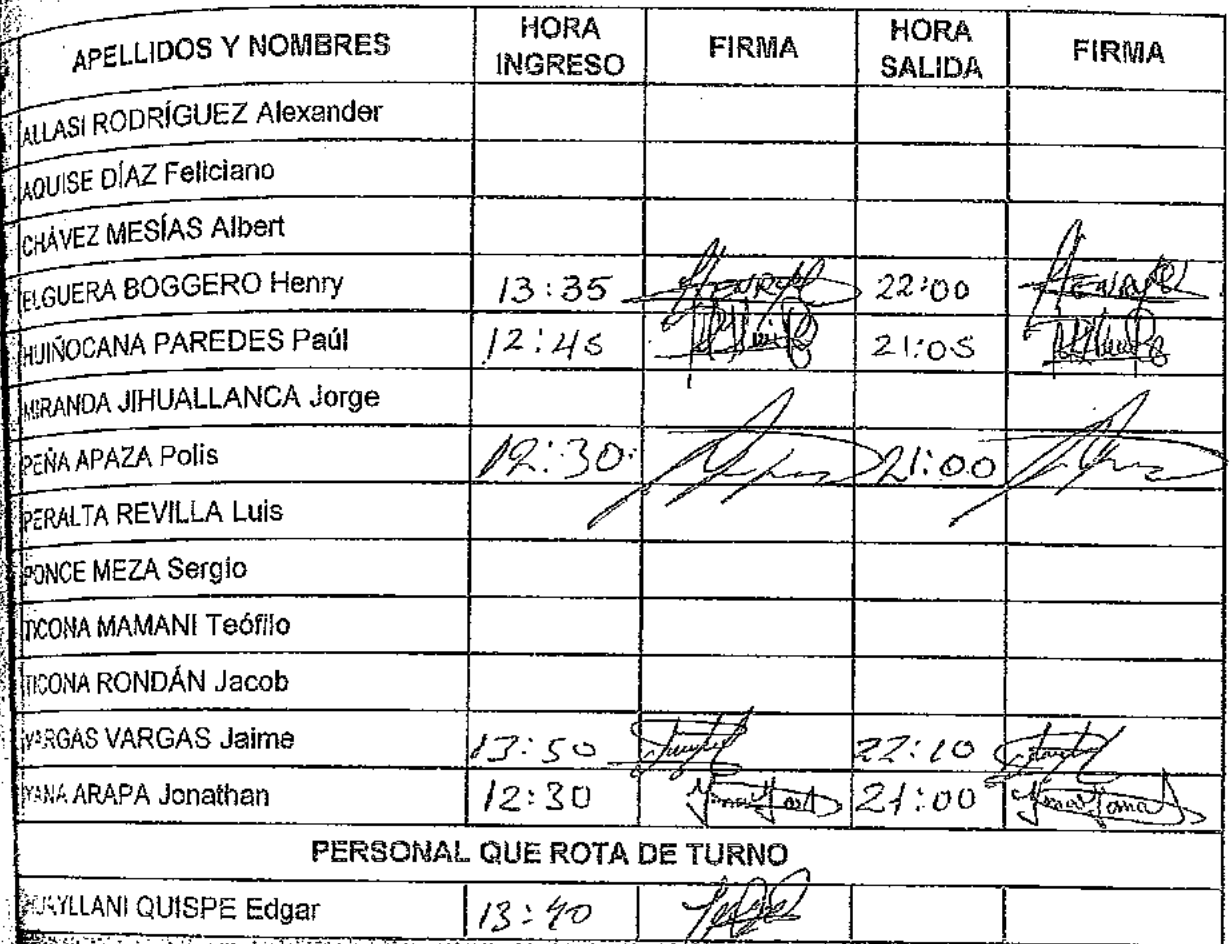 APELLIDOS Y NOMBRES HORA INGRESO FIRMA HORA SALIDA FIRMA
ALLASI RODRÍGUEZ Alexander
AQUISE DÍAZ Feliciano
CHÁVEZ MESÍAS Albert
ELGUERA BOGGERO Henry 13:35 22:00
HUIÑOCANA PAREDES Paúl 12:45 21:05
MIRANDA JIHUALLANCA Jorge
PEÑA APAZA Polis 12:30 21:00
PERALTA REVILLA Luis
PONCE MEZA Sergio
TICONA MAMANI Teófilo
TICONA RONDÁN Jacob
VARGAS VARGAS Jaime 13:50 22:10
YANA ARAPA Jonathan 12:30 21:00
PERSONAL QUE ROTA DE TURNO
HUAYLLANI QUISPE Edgar 13:40